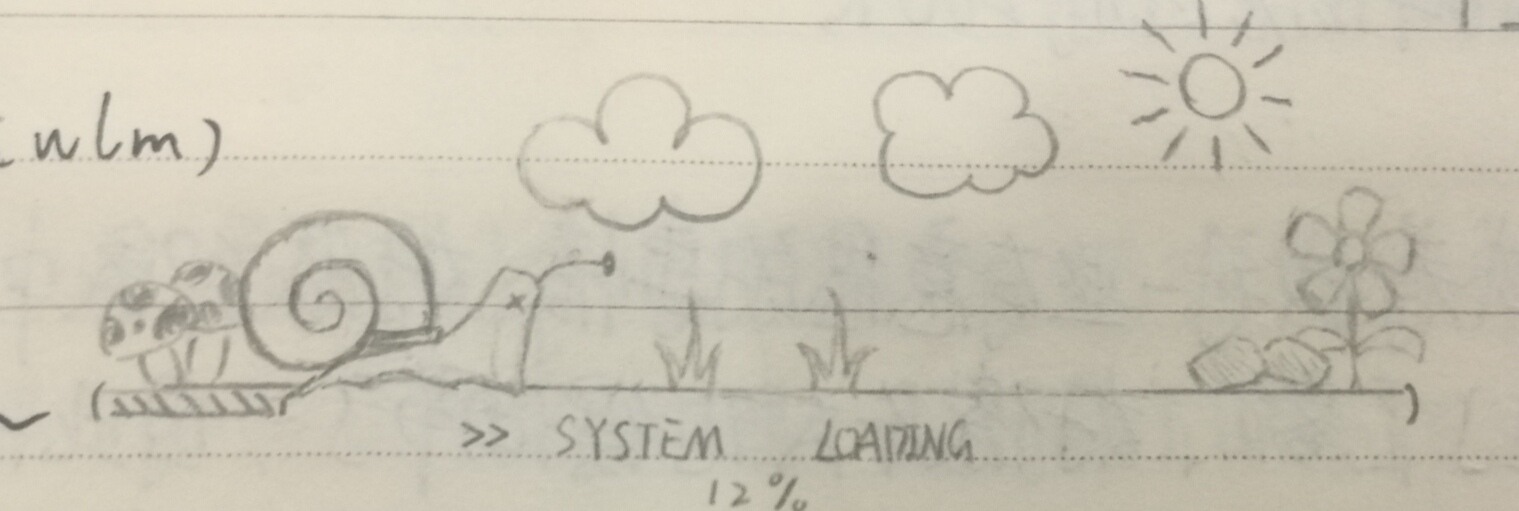 wlm)
>> SYSTEM LOADING
12%